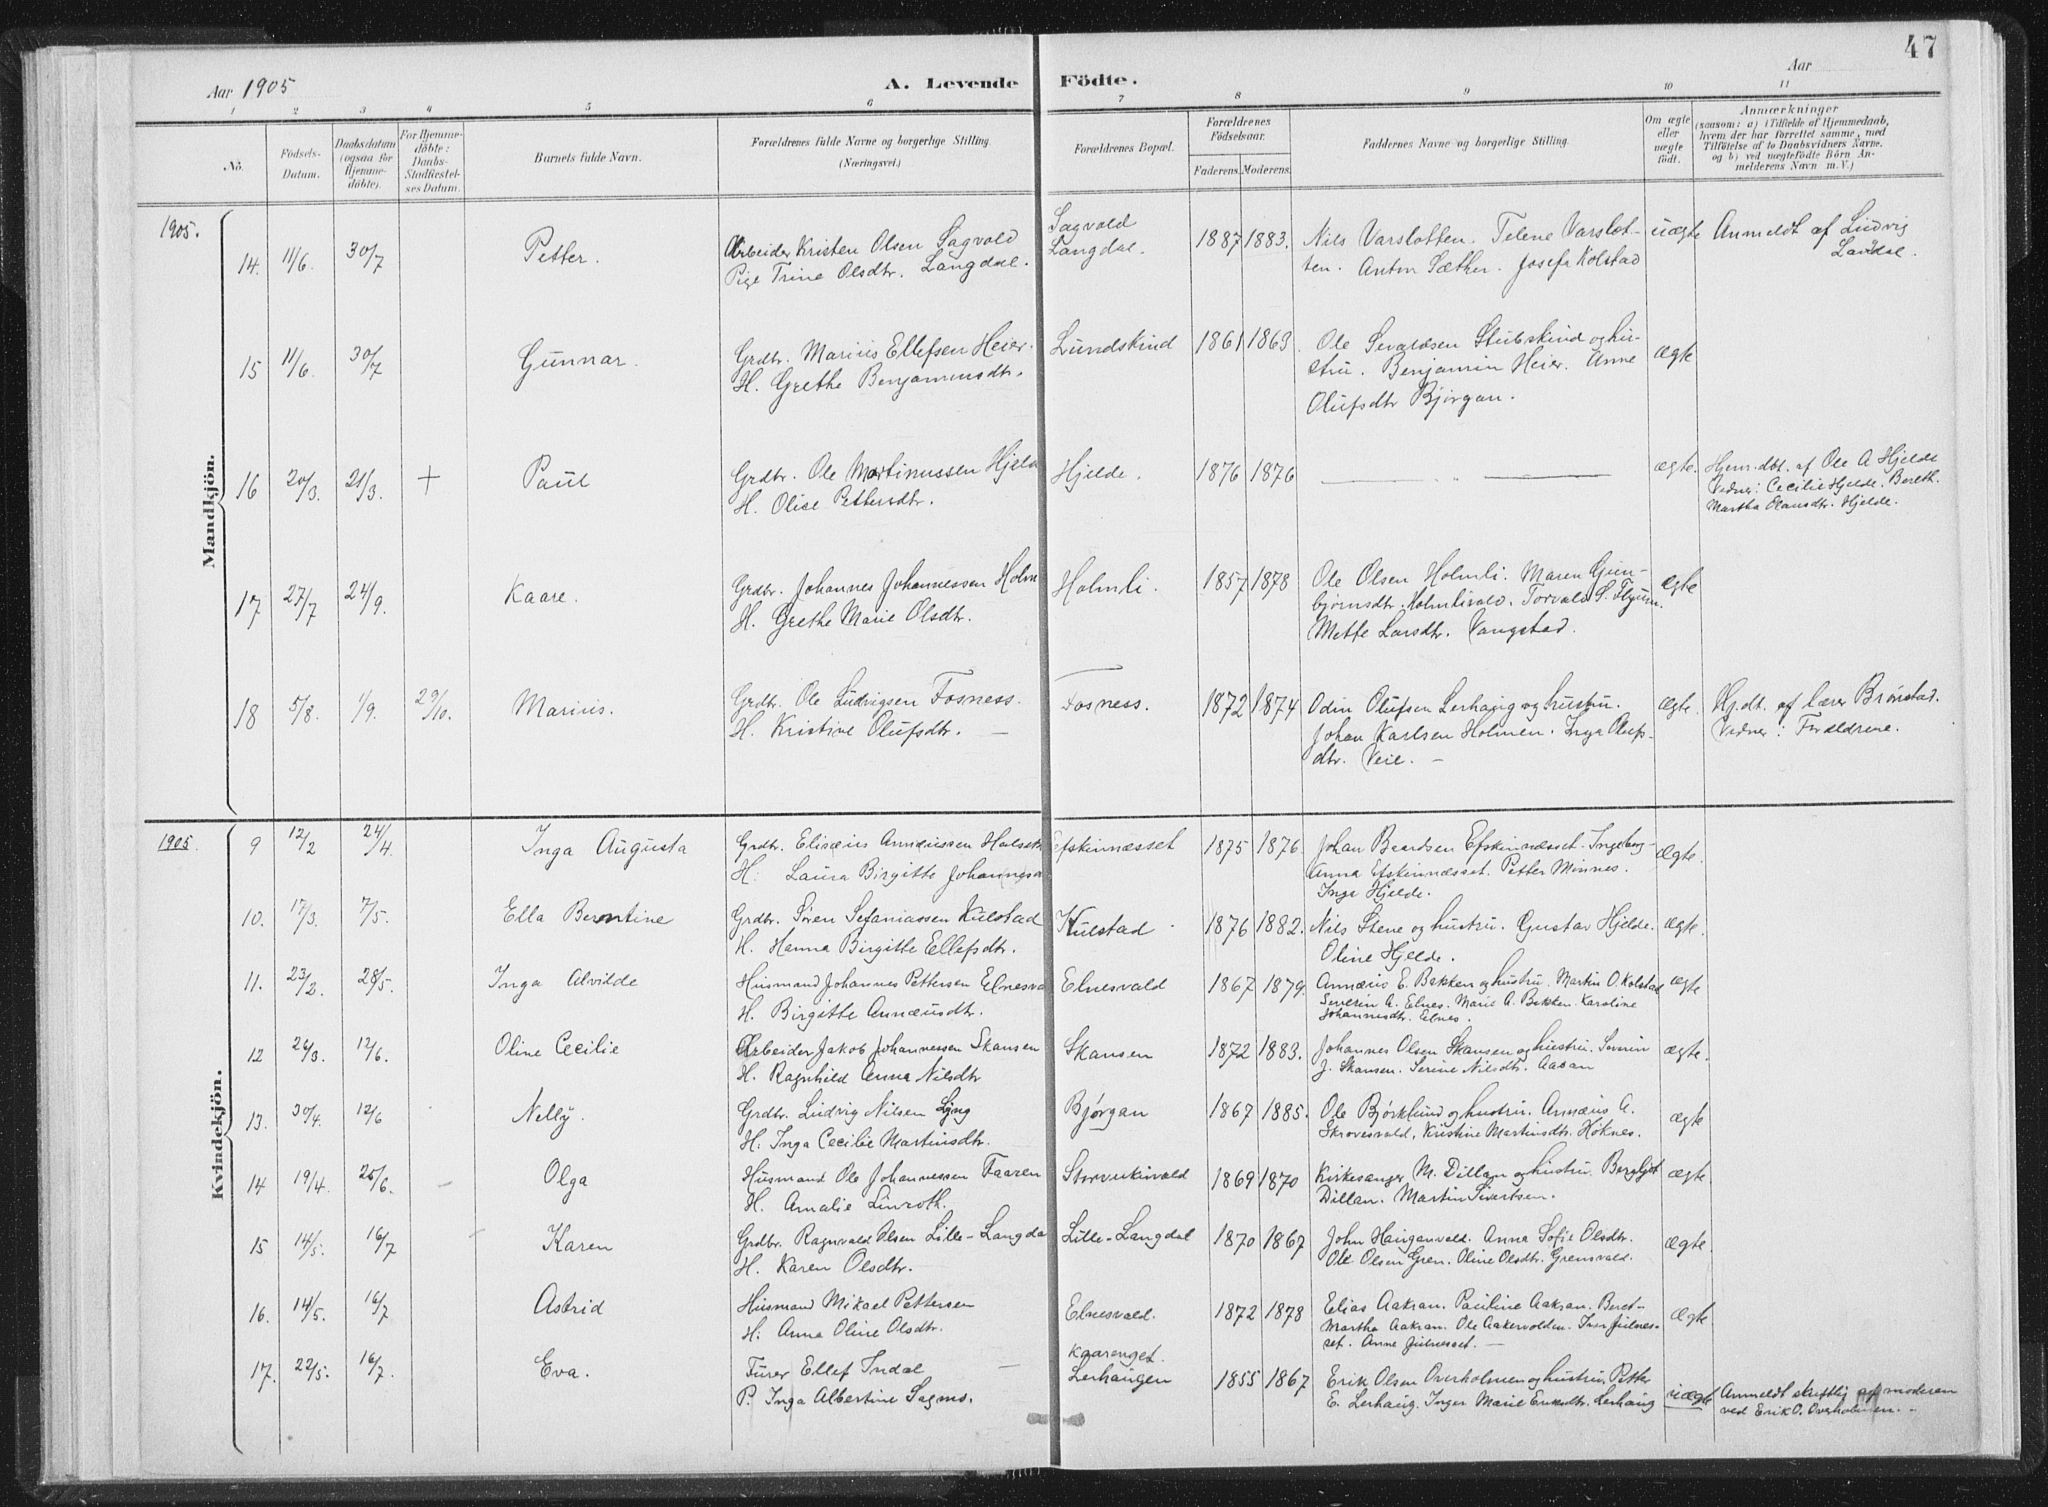 47
Aar 1905
A. Levende Födte.
Aar
1 2 3 4 5 6 7 8 9 10 11
No.
Födsels-Datum.
Daabsdatum (ogsaa for Hjemmedöbte).
For Hjemmedöbte: Daabs-Stadfæstelses Datum.
Barnets fulde Navn.
Forældrenes fulde Navne og borgerlige Stilling. (Næringsvei.)
Forældrenes Bopæl.
Forældrenes Födselsaar.
Faderens. Moderens.
Faddernes Navne og borgerlige Stilling.
Om ægte eller uægte födt.
Anmærkninger
(saasom: a) i Tilfælde af Hjemmedaab,
hvem der har forrettet samme, med
Tilföielse af to Daabsvidners Navne.
og b) ved uægtefödte Börn An-
melderens Navn m. V.)
1905.
Mandkjön.
14. 11/6. 30/7 Petter. Arbeider Kristen Olsen Sagvold Sagvold 1887 1883. Nils Varslotten. Telene Varslot- uægte Anmeldt af Ludvig
Pige Trine Olsdtr. Langdal. Langdal. ten. Anton Sæther. Josefa Kolstad
15 11/6. 30/7 Gunnar. Grdbr. Marius Ellefsen Heier. Lundskind 1861 1863. Ole Sevaldsen Stubskind og hu- ægte
H. Grethe Benjaminsdtr. stru. Benjamin Heier. Anne
Olufsdtr Bjørgan.
16 20/3. 21/3. + Paul Grdbr. Ole Martinussen Hjelde Hjelde. 1876 1876 — " — ægte. Hjem.dbt. af Ole A Hjelde
H. Olise Pettersdtr. Vidner: Cecilie Hjelde. Bereth.
Martha Olausdtr. Hjelde.
17 27/7 24/9. Kaare. Grdbr. Johannes Johannessen Holm Holmli. 1857 1878 Ole Olsen Holmli. Maren Gun- ægte
H. Grethe Marie Olsdtr. bjørnsdtr. Holmlivald. Torvald S. Flyum.
Mette Larsdtr. Vangstad.
18 5/8. 1/9. 29/10. Marius. Grdbr. Ole Ludvigsen Fosness. Fosness. 1872 1874 Odin Olufsen Lerhaug og hustru. ægte. Hj.dt. af lærer Brønstad.
H. Kristine Olufsdtr. — Johan Karlsen Holmen. Inga Olufs- Vidner: Forældrene.
dtr. Veie. —
1905.
Kvindekjön.
9 12/2 24/4. Inga Augusta Grdbr. Elisæus Annæussen Halseth Efskinnæsset 1875 1876. Johan Baardsen Efskinnæsset. Ingeborg- ægte.
H. Laura Birgitte Johannesd Anna Efskinnæsset. Petter Minnes.
Inga Hjelde.
10. 17/3. 7/5. Ella Berntine Grdbr. Søren Sefaniassen Kulstad Kulstad 1876 1882. Nils Stene og hustru. Gustav Hjelde. ægte.
H. Hanna Birgitte Ellefsdtr. Oline Hjelde.
11. 23/2. 28/5. Inga Alvilde Husmand Johannes Pettersen Elnesva Elnesvald 1867 1879. Annæus E. Bekken og hustru. Martin O. Kolstad ægte
H. Birgitte Annæusdtr. Severin A. Elnes. Marie A. Bekken. Karoline
Johannesdtr. Elnes.
12 26/3. 12/6. Oline Cecilie Arbeider Jakob Johannessen Skansen Skansen 1872 1883. Johannes Olsen Skansen og hustru. Severin ægte.
H. Ragnhild Anna Nilsdtr J. Skansen. Serine Nilsdtr. Aasan
13. 30/4. 12/6 Nelly. Grdbr. Ludvig Nilsen Lyng Bjørgan 1867 1885. Ole Bjørklund og hustru. Annæus A. ægte
H. Inga Cecilie Martinsdtr. Skrovesvald, Kristine Martinsdtr. Høknes.
14 19/4. 25/6. Olga Husmand Ole Johannessen Faaren Storvukuvald 1869 1870 Kirkesanger M. Dillan og hustru. Bergljot ægte.
H. Amalie Linroth. Dillan. Martin Sivertsen.
15 14/5. 16/7 Karen Grdbr. Ragnvald Olsen Lille-Langda Lille-Langdal 1870 1867 John Hauganvald. Anna Sofie Olsdtr. ægte.
H. Karen Olsdtr. Ole Olsen Gren. Oline Olsdtr. Grensvald.
16. 14/5. 16/7 Astrid Husmand Mikael Pettersen Elnesvald. 1872 1878 Elias Aakran. Pauline Aakran. Beret- ægte
H. Anna Oline Olsdtr. Martha Aakran. Ole Aakervolden. Iver Julnes-
set. Anne Julnesset. —
17. 22/5. 16/7. Eva. Furer Ellef Indal — Kaarenget. 1855 1867 Erik Olsen Overholmen og hustru. Petter uægte Anmeldt skriftlig af moderen
P. Inga Albertine Sagmo. Lerhaugen E. Lerhaug. Inger Marie Eriksdtr. Lerhaug ved Erik O. Overholmen. —